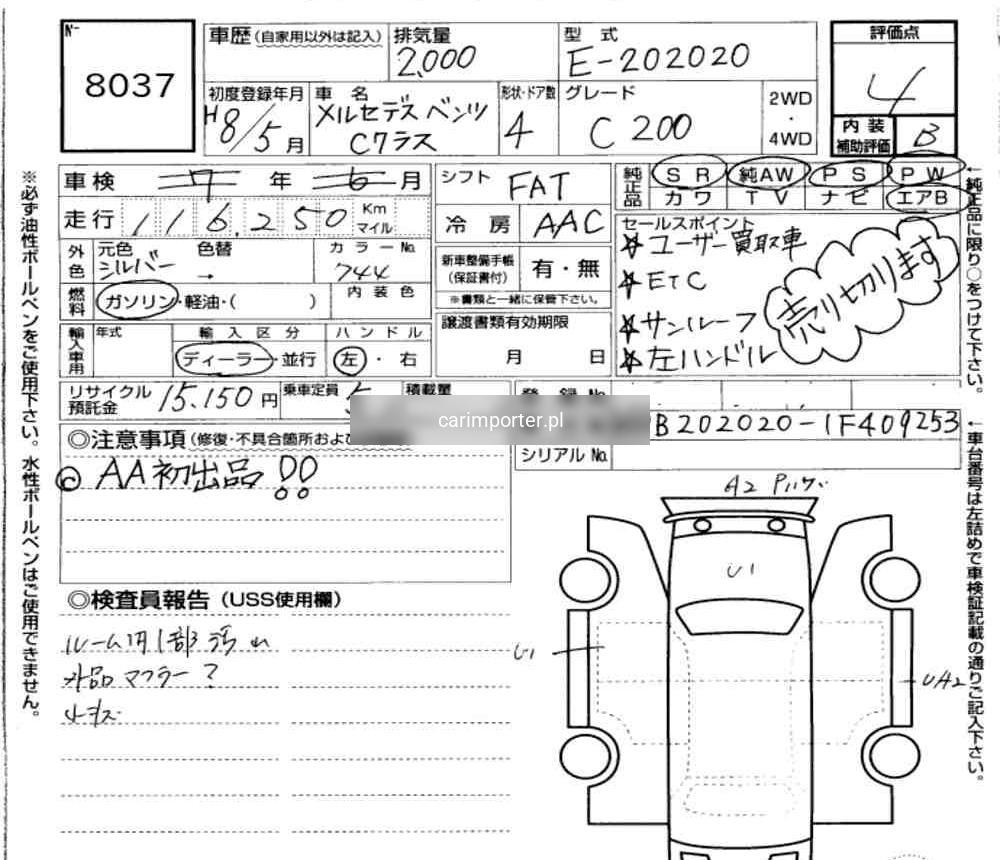 8037
車歴(自家用以外は記入) 排気量 2,000 型式 E-202020 評価点 4
初度登録年月 H8/5月 車名 メルセデスベンツ Cクラス 形状・ドア数 4 グレード C200 2WD・4WD 内装補助評価 B
車検 7年6月 シフト FAT 純正品 SR 純AW PS PW
カワ TV ナビ エアB
走行 116,250 Km マイル 冷房 AAC
セールスポイント
ユーザー買取車
ETC
サンルーフ
左ハンドル
売り切ります
外色 元色 シルバー 色替 → カラーNo. 744
新車整備手帳(保証書付) 有・無
※書類と一緒に保管下さい。
燃料 ガソリン・軽油・( ) 内装色
譲渡書類有効期限 月 日
輸入車用 年式 輸入区分 ディーラー・並行 ハンドル 左・右
リサイクル預託金 15,150円 乗車定員 5 積載量
登録No.
carimporter.pl
B202020-1F409253
シリアルNo.
◎注意事項(修復・不具合箇所および
◎AA初出品!!
◎検査員報告(USS使用欄)
外品マフラー?
A2
U1
U1
UA2
※必ず油性ボールペンをご使用下さい。水性ボールペンはご使用できません。
←純正品に限り○をつけて下さい。
←車台番号は左詰めで車検証記載の通りご記入下さい。